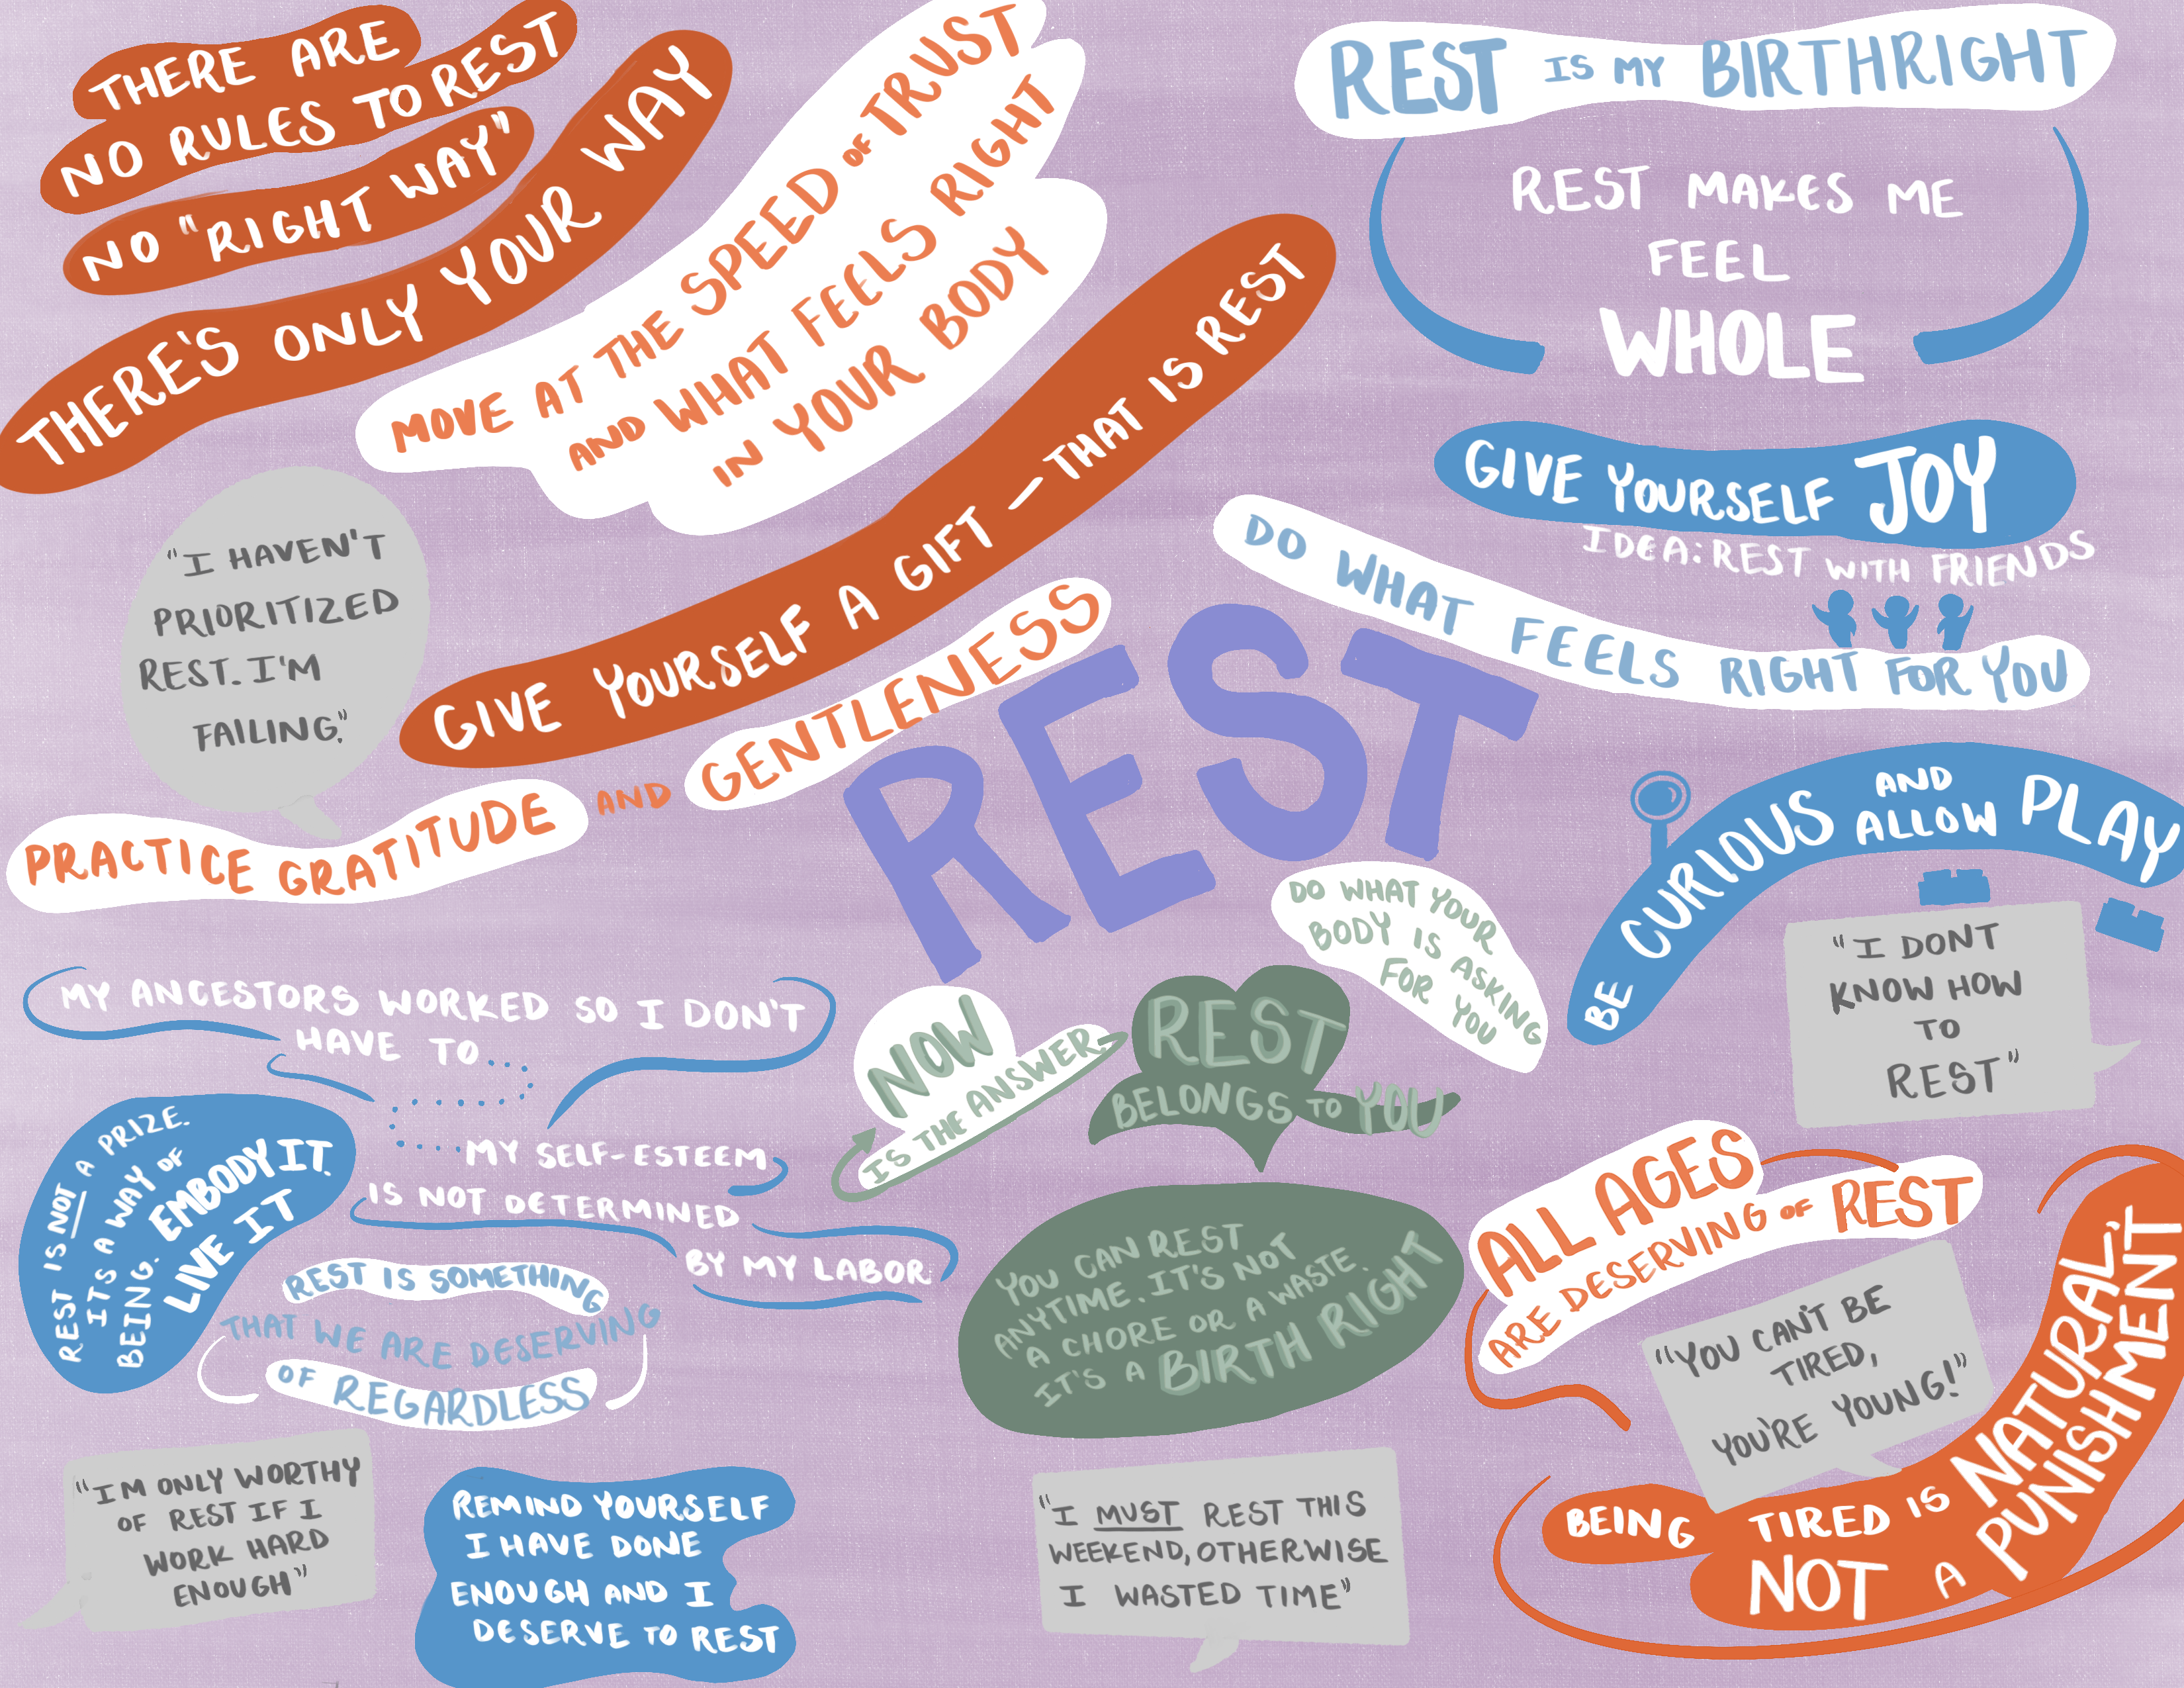 THERE ARE
NO RULES TO REST
NO "RIGHT WAY"
THERE'S ONLY YOUR WAY
MOVE AT THE SPEED OF TRUST
AND WHAT FEELS RIGHT
IN YOUR BODY
REST IS MY BIRTHRIGHT
REST MAKES ME
FEEL
WHOLE
GIVE YOURSELF JOY
IDEA: REST WITH FRIENDS
DO WHAT FEELS RIGHT FOR YOU
GIVE YOURSELF A GIFT — THAT IS REST
"I HAVEN'T
PRIORITIZED
REST. I'M
FAILING."
PRACTICE GRATITUDE AND GENTLENESS
REST
BE CURIOUS AND ALLOW PLAY
"I DONT
KNOW HOW
TO
REST"
DO WHAT YOUR
BODY IS ASKING
FOR YOU
NOW
IS THE ANSWER
REST
BELONGS TO YOU
MY ANCESTORS WORKED SO I DON'T
HAVE TO
MY SELF-ESTEEM
IS NOT DETERMINED
BY MY LABOR
REST IS NOT A PRIZE.
IT'S A WAY OF
BEING. EMBODY IT.
LIVE IT
REST IS SOMETHING
THAT WE ARE DESERVING
OF REGARDLESS
YOU CAN REST
ANYTIME. IT'S NOT
A CHORE OR A WASTE.
IT'S A BIRTH RIGHT
ALL AGES
ARE DESERVING OF REST
"YOU CAN'T BE
TIRED,
YOU'RE YOUNG!"
BEING TIRED IS NATURAL,
NOT A PUNISHMENT
"I'M ONLY WORTHY
OF REST IF I
WORK HARD
ENOUGH"
REMIND YOURSELF
I HAVE DONE
ENOUGH AND I
DESERVE TO REST
"I MUST REST THIS
WEEKEND, OTHERWISE
I WASTED TIME"